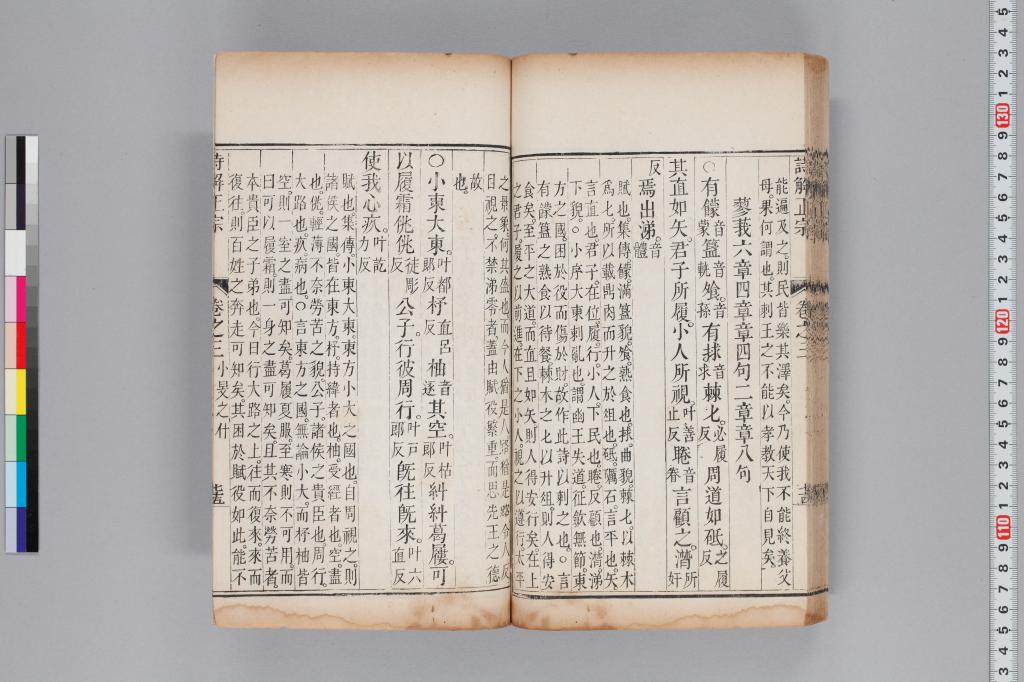 詩解正宗 卷之三
能遍及之則民皆樂其澤矣今乃使我不能終養父
母果何謂也其刺王之不能以孝教天下自見矣
蓼莪六章四章章四句二章章八句
○有饛音蒙簋音軌飧音孫有捄音求棘匕必履反周道如砥之履反
其直如矢君子所履小人所視叶善止反睠音眷言顧之潸所奸
反焉出涕音體
賦也集傳饛滿簋貌飧熟食也捄曲貌棘匕以棘木
爲匕所以載鼎肉而升之於俎也砥礪石言平也矢
言直也君子在位履行小人下民也睠反顧也潸涕
下貌○小序大東刺亂也謂幽王失道征歛無節東
方之國困於役而傷於財故作此詩以刺之也○言
有饛簋之熟食以待餐棘木之匕以升俎則人得安
食矣至平之大道而直且如矢則人得安行矣在上
之君子履之以前進在下之小人視之以遵行太平
之景象何其盛也而今人
目視之不禁涕零者蓋由賦役繁重而思先王之德
故也
○小東大東叶都郎反杼直呂反柚音逐其空叶枯郎反糾糾葛屨可
以履霜佻佻徒彫反公子行彼周行叶戸郎反旣往旣來叶六直反
使我心疚叶訖力反
賦也集傳小東大東東方小大之國也自周視之則
諸侯之國皆在東方杼持緯者也柚受經者也空盡
也佻輕薄不奈勞苦之貌公子諸侯之貴臣也周行
大路也疚病也○言東方之國無論小大而杼柚皆
空則一室之盡可知矣葛屨夏服至寒則不可用而
曰可以履霜則一身之盡可知矣且其不奈勞苦者
本貴臣之子弟也今日行大路之上往而復來來而
復往則百姓之奔走可知矣其困於賦役如此能不
詩解正宗 卷之三 小旻之什